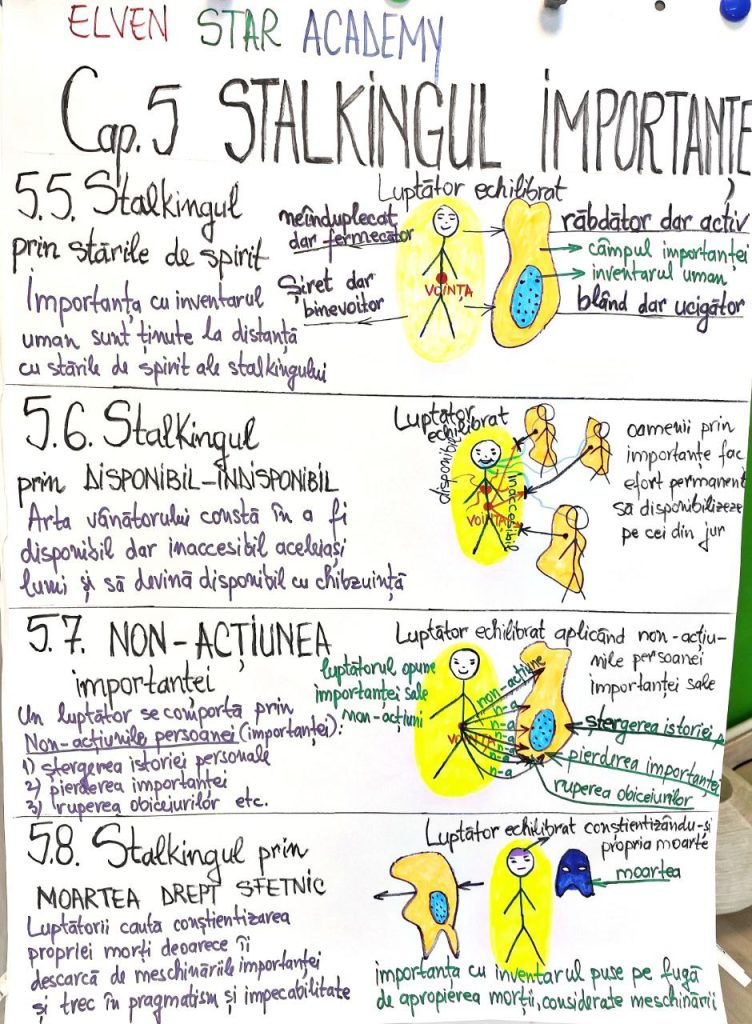 ELVEN STAR ACADEMY
Cap. 5 STALKINGUL IMPORTANȚE
5.5. Stalkingul
prin stările de spirit
Importanța cu inventarul
uman sunt ținute la distanță
cu stările de spirit ale stalkingului
Luptător echilibrat
neînduplecat
dar fermecător
Șiret dar
binevoitor
VOINȚA
răbdător dar activ
câmpul importanței
inventarul uman
blând dar ucigător
5.6. Stalkingul
prin DISPONIBIL-INDISPONIBIL
Arta vânătorului constă în a fi
disponibil dar inaccesibil aceleiași
lumi și să devină disponibil cu chibzuință
Luptător
echilibrat
disponibil
inaccesibil
VOINȚA
oamenii prin
importanțe fac
efort permanent
să disponibilizeze
pe cei din jur
5.7. NON-ACȚIUNEA
importanței
Un luptător se comportă prin
Non-acțiunile persoanei (importanței):
1) ștergerea istoriei personale
2) pierderea importanței
3) ruperea obiceiurilor etc.
Luptător echilibrat aplicând non-acțiu-
nile persoanei
importanței sale
luptătorul opune
importanței sale
non-acțiuni
VOINȚA
non-acțiune
n-a
n-a
n-a
n-a
n-a
n-a
ștergerea istoriei p
pierderea importanței
ruperea obiceiurilor
5.8. Stalkingul prin
MOARTEA DREPT SFETNIC
Luptătorii cauta conștientizarea
propriei morți deoarece îi
descarcă de meschinăriile importanței
și trec în pragmatism și impecabilitate
Luptător echilibrat conștientizându-și
propria moarte
moartea
importanța cu inventarul puse pe fugă
de apropierea morții, considerate meschinării